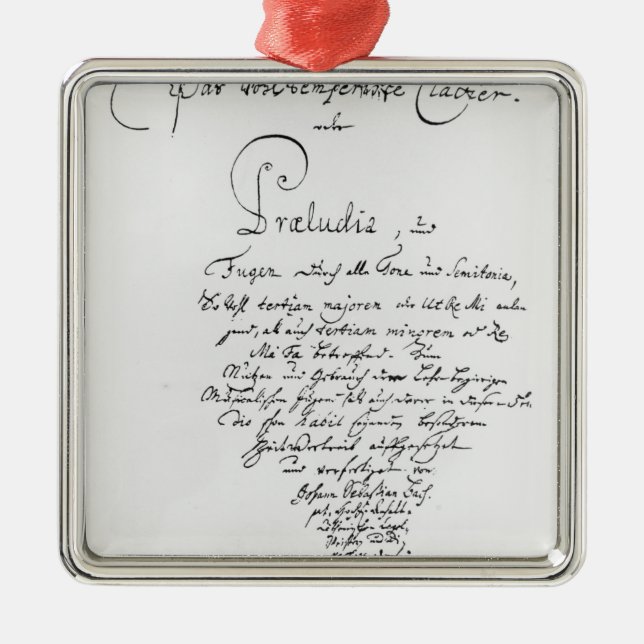 Das Wohltemperirte Clavier.
oder
Præludia, und
Fugen durch alle Tone und Semitonia,
So wohl tertiam majorem oder Ut Re Mi anlan
gend, als auch tertiam minorem oder Re
Mi Fa betreffend. Zum
Nutzen und Gebrauch der Lehrbegierigen
Musicalischen Jugend, als auch derer in diesem stu
dio schon habil seyenden besonderem
Zeitvertreib auffgesetzet
und verfertiget von
Johann Sebastian Bach.
p. t. Hochf. Anhalt-
Cöthenischen Capel-
Meistern und Di-